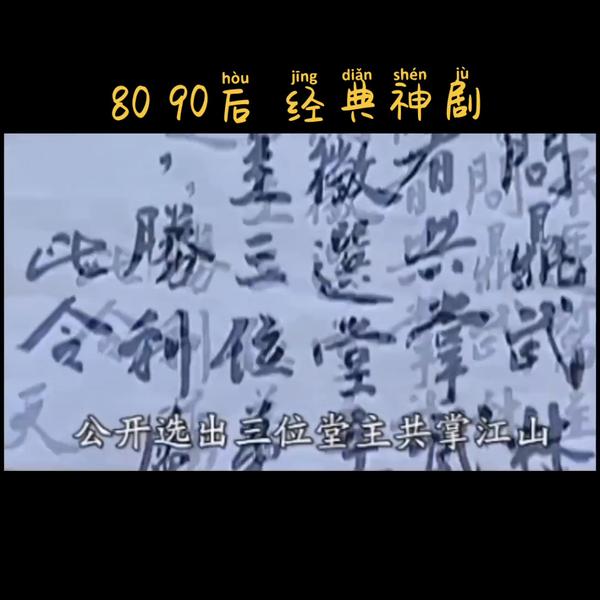 hòu jīng diǎn shén jù
80 90后 经典神剧
問鼎武林
者共掌
徵選堂
主三位
，勝利
此令
天
公开选出三位堂主共掌江山